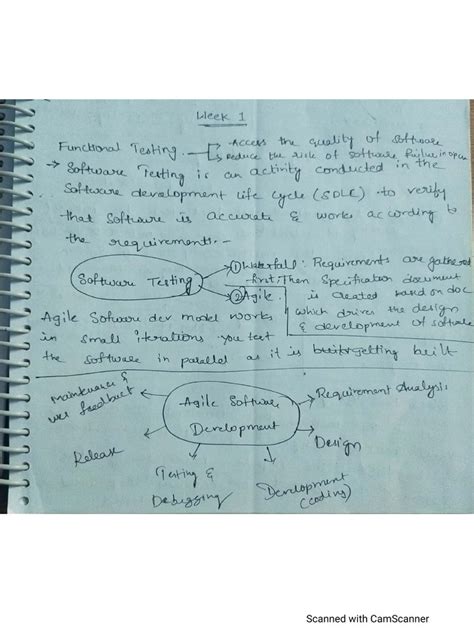 Week 1
Functional Testing - Access the quality of software
Reduce the risk of software failure in oper
→ Software Testing is an activity conducted in the
Software development life cycle (SDLC) to verify
that software is accurate & works according to
the requirements. -
Software Testing
① Waterfall: Requirements are gathered
first. Then Specification document
is created based on doc
which drives the design
& development of software
② Agile
Agile Software dev model works
in small iterations you test
the software in parallel as it is getting built
Agile Software
Development
Requirement Analysis
Design
Development
(coding)
Testing &
Debugging
Release
Maintenance &
user feedback
Scanned with CamScanner